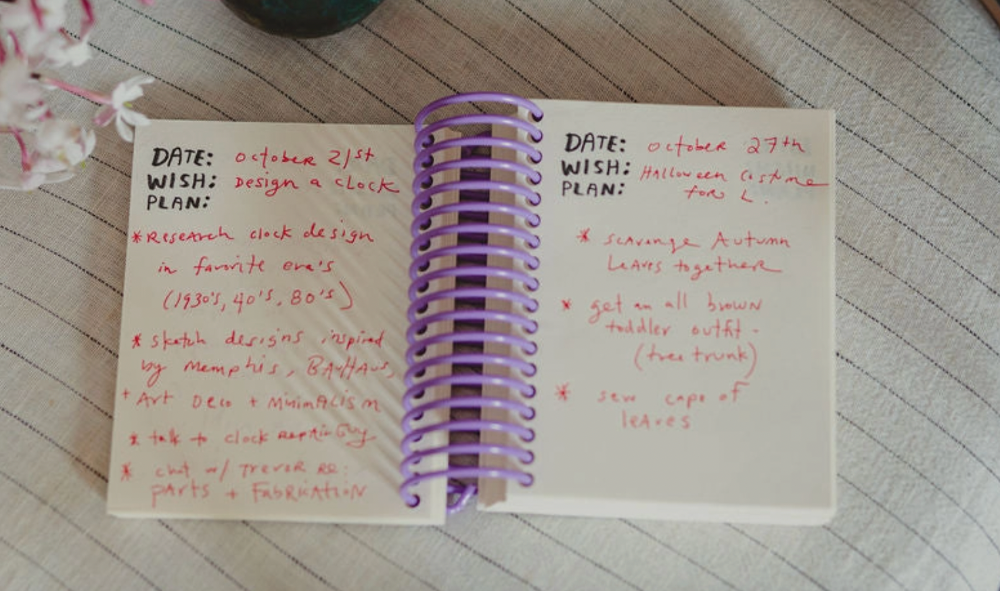 DATE: October 21st
WISH: Design a clock
PLAN:
* Research clock design
in favorite era's
(1930's, 40's, 80's)
* sketch designs inspired
by Memphis, BAUHAUS,
+ Art Deco + Minimalism
* talk to clock repair guy
* chat w/ Trevor re:
parts + FABRICATION
DATE: October 27th
WISH: Halloween Costume
PLAN: for L.
* scavange Autumn
Leaves together
* get an all brown
toddler outfit -
(tree trunk)
* sew cape of
leaves